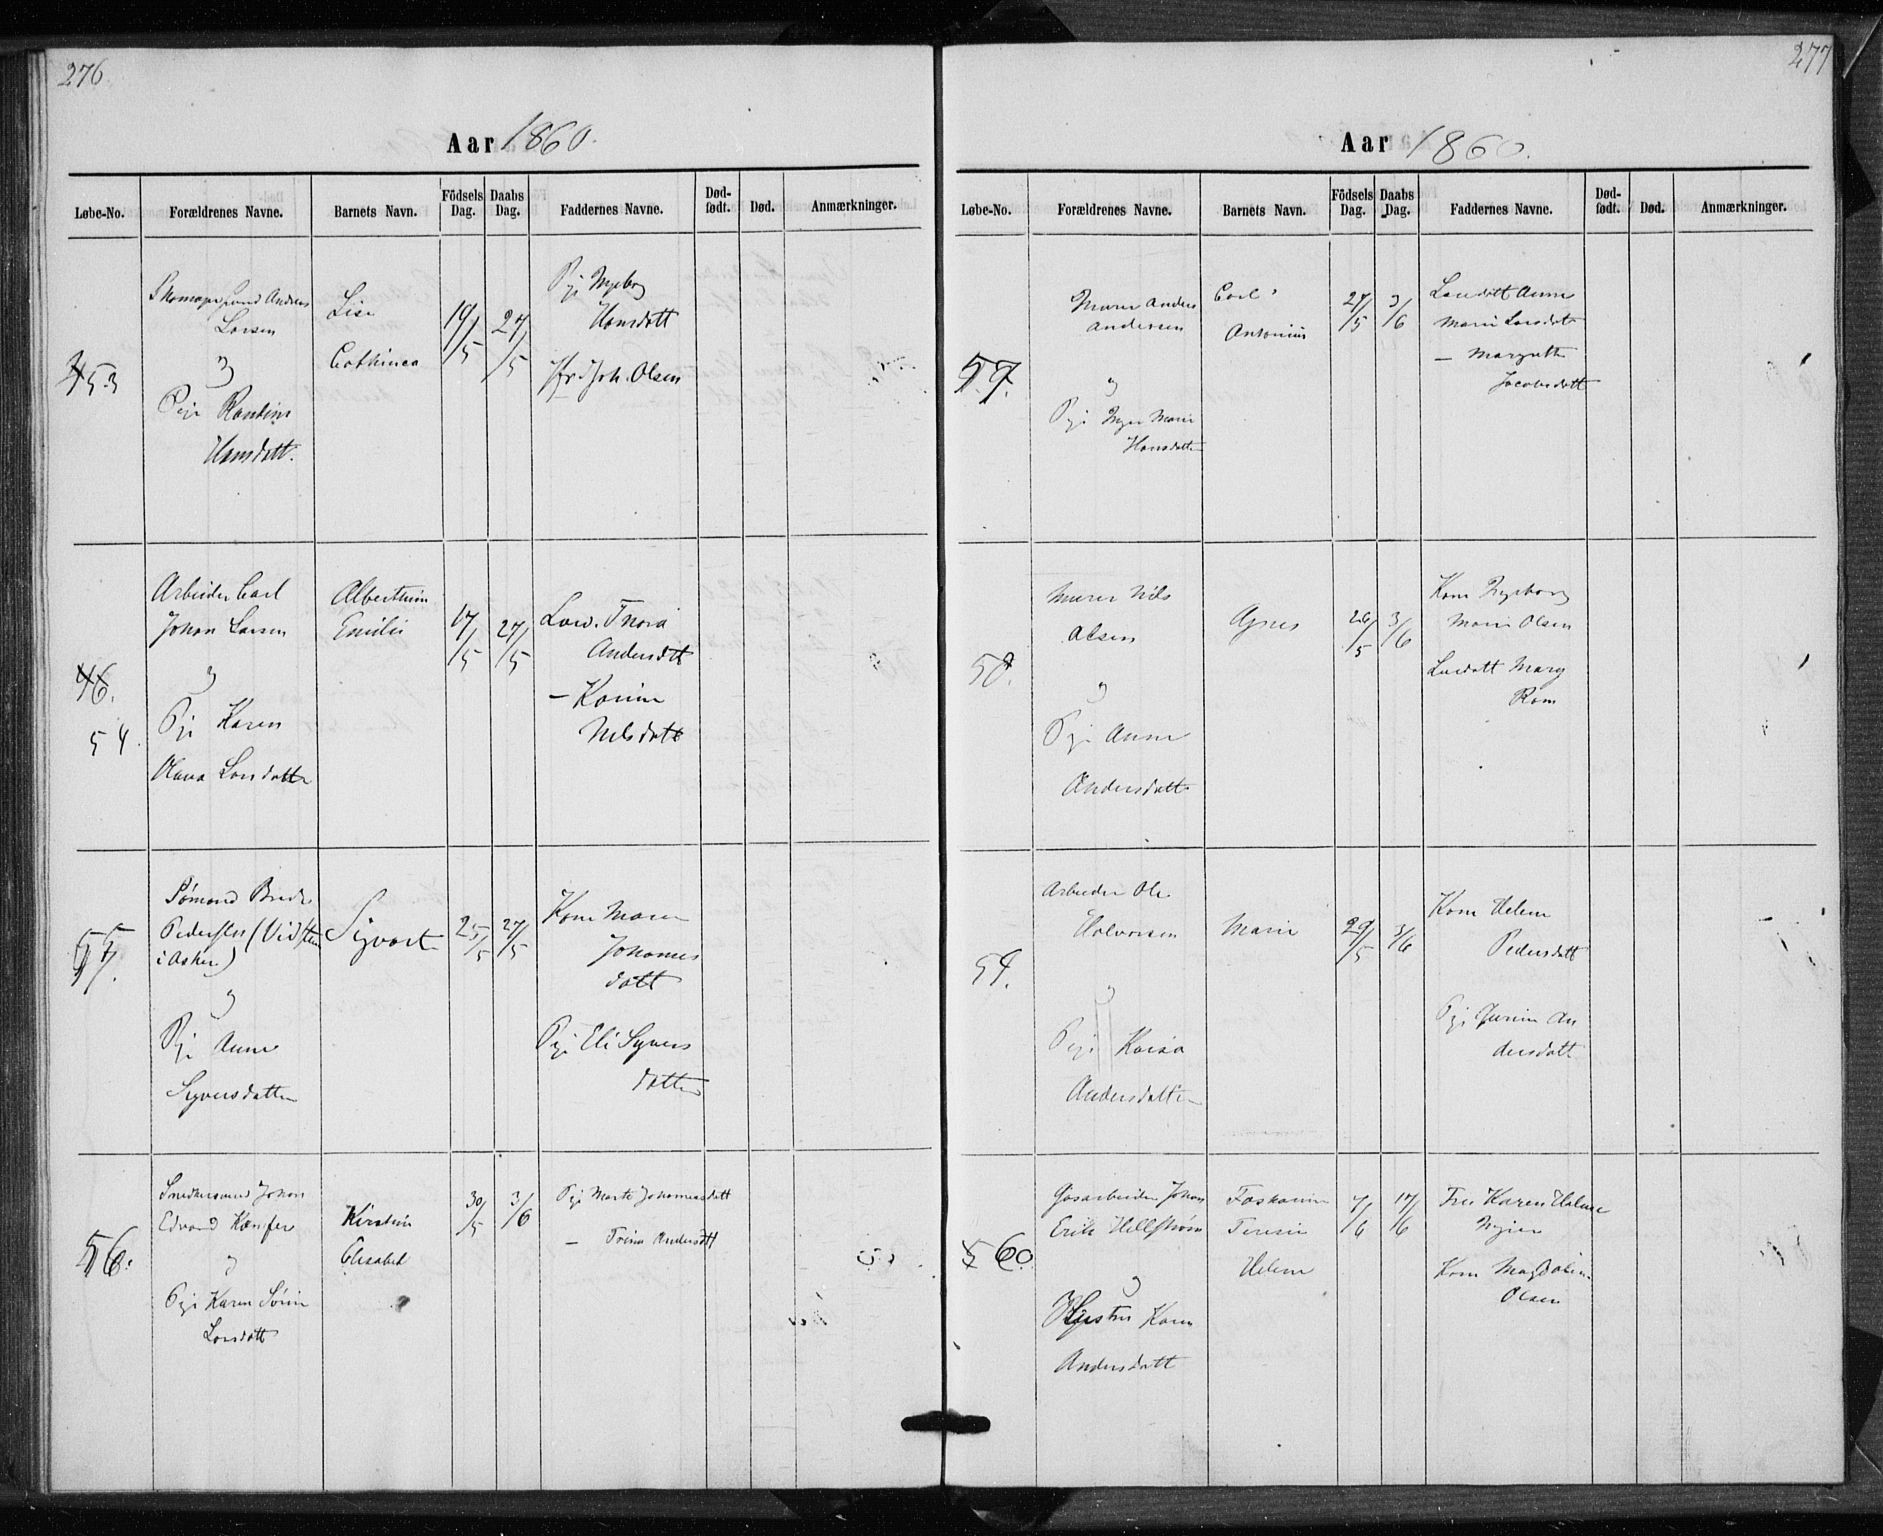 276
Aar 1860.
Løbe-No. Forældrenes Navne. Barnets Navn. Födsels Dag. Daabs Dag. Faddernes Navne. Død-født. Død. Anmærkninger.
53
Andreas
Larsen
Pige
Hansdatt.
Lise
19/5
27/5
Pige Ingeborg
Hansdatt
Joh. Olsen
46.
54.
Arbeider Carl
Johan Larsen
Pige Karen
Olava Larsdatter
Emilie
17/5
27/5
Andersdtt
— Karine
Nilsdatt
55
Sømand
i Asker)
Pige Anne
Syversdatter
Syvart
25/5
27/5
Kone Maren
Johannes
datt
Pige Eli Syvers
datter
56.
Snedkersvend Johan
Edvard
Pige Karen
Larsdatt
Kirstine
Elisabet
30/5
3/6
Pige Marte Johannesdatt
— Trine Andersdtt
277
Aar 1860.
Løbe-No. Forældrenes Navne. Barnets Navn. Födsels Dag. Daabs Dag. Faddernes Navne. Død-født. Død. Anmærkninger.
57.
Murer Anders
Andersen
Pige Inger Marie
Hansdatter
Carl
Antonius
27/5
3/6
Anne
Marie Larsdatt
— Margrethe
Jacobsdatt
58.
Murer Nils
Olsen
Pige Anne
Andersdatt
Agnes
26/5
3/6
Kone Ingeborg
Marie Olsen
Mary
Rom
59.
Arbeider Ole
Halvorsen
Pige Kaisa
Andersdatter
Marie
29/5
3/6
Kone Helene
Pedersdatt
Pige An
dersdatt
60.
Gasarbeider Johan
Erik Hellstrøm
Hustru Karen
Andersdatt
Teresie
Helene
7/6
17/6
Fru Karen Helene
Kone Magdalene
Olsen